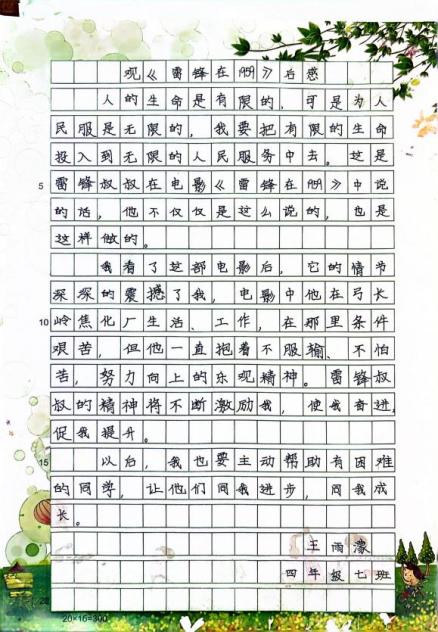 观《雷锋在1959》后感
人的生命是有限的，可是为人
民服是无限的，我要把有限的生命
投入到无限的人民服务中去。这是
5 雷锋叔叔在电影《雷锋在1959》中说
的话，他不仅仅是这么说的，也是
这样做的。
我看了这部电影后，它的情节
深深的震撼了我，电影中他在弓长
10 岭焦化厂生活、工作，在那里条件
艰苦，但他一直抱着不服输、不怕
苦，努力向上的乐观精神。雷锋叔
叔的精神将不断激励我，使我奋进，
促我提升。
15 以后，我也要主动帮助有困难
的同学，让他们同我进步，同我成
长。
王雨濛
四年级七班
20×15=300